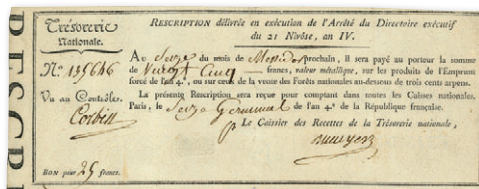 Trésorerie
Nationale.
RESCRIPTION délivrée en exécution de l'Arrêté du Directoire exécutif
du 21 Nivôse, an IV.
N.° 135646
Au Seize du mois de Messidor prochain, il sera payé au porteur la somme
de Vingt Cinq francs, valeur métallique, sur les produits de l'Emprunt
forcé de l'an 4.e, ou sur ceux de la vente des Forêts nationales au-dessous de trois cents arpens.
Vu au Contrôle.
La présente Rescription sera reçue pour comptant dans toutes les Caisses nationales.
Paris, le Seize Germinal de l'an 4.e de la République française.
Le Caissier des Recettes de la Trésorerie nationale,
BON pour 25 francs.